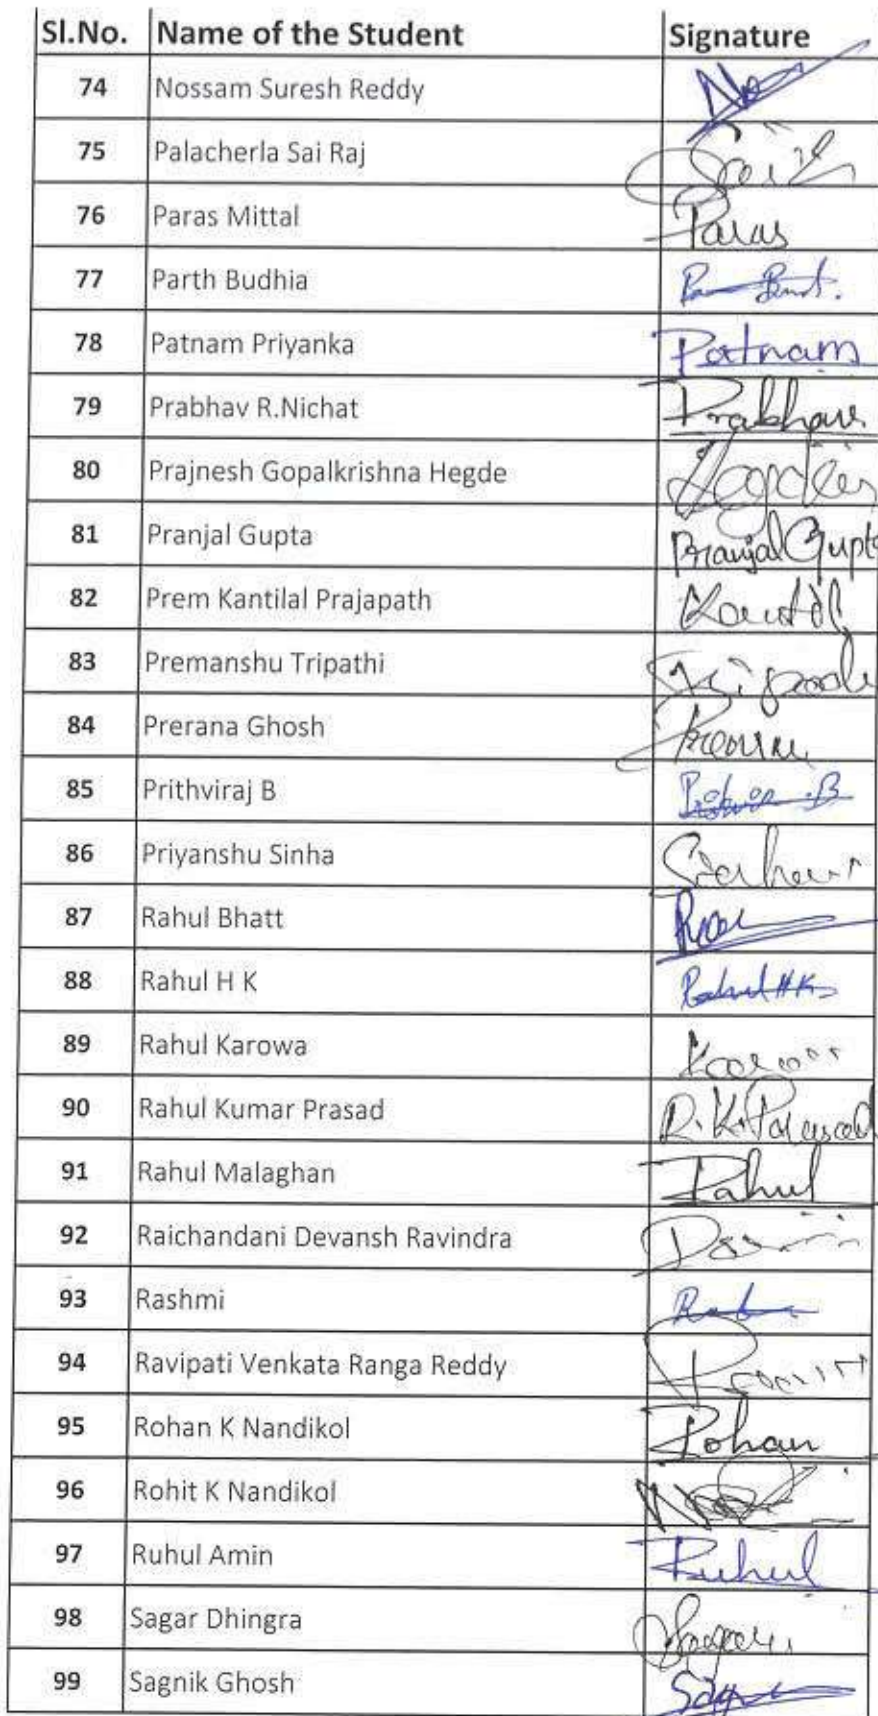 Sl.No. Name of the Student Signature
74 Nossam Suresh Reddy
75 Palacherla Sai Raj
76 Paras Mittal Paras
77 Parth Budhia
78 Patnam Priyanka Patnam
79 Prabhav R.Nichat Prabhav
80 Prajnesh Gopalkrishna Hegde
81 Pranjal Gupta Pranjal Gupta
82 Prem Kantilal Prajapath
83 Premanshu Tripathi
84 Prerana Ghosh
85 Prithviraj B
86 Priyanshu Sinha
87 Rahul Bhatt
88 Rahul H K Rahul H K
89 Rahul Karowa
90 Rahul Kumar Prasad R.K.Prasad
91 Rahul Malaghan Rahul
92 Raichandani Devansh Ravindra
93 Rashmi
94 Ravipati Venkata Ranga Reddy
95 Rohan K Nandikol Rohan
96 Rohit K Nandikol
97 Ruhul Amin Ruhul
98 Sagar Dhingra
99 Sagnik Ghosh